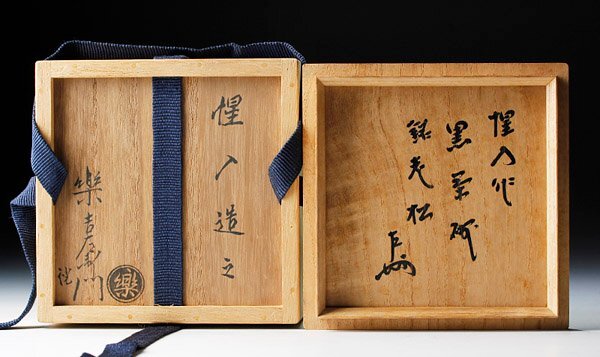 惺入作
黒茶碗
銘老松
惺入造之
樂吉左衛門
樂